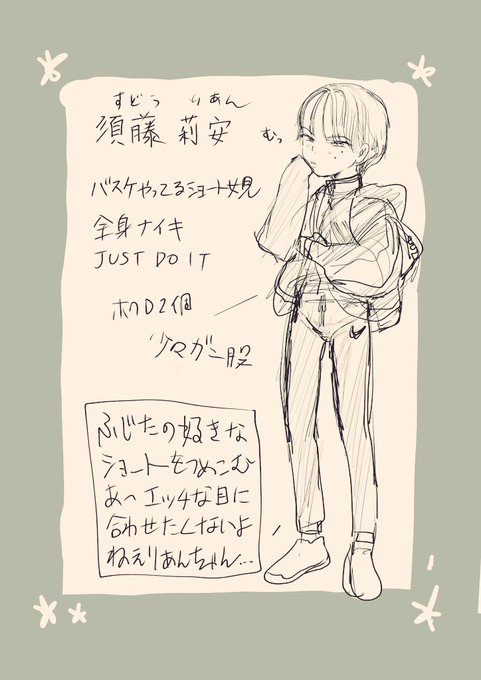 すどう りあん
須藤 莉安
むっ
バスケやってるショート女児
全身ナイキ
JUST DO IT
ホクロ2個
少々ガニ股
ふじたの好きな
ショートをつめこむ
あ〜エッチな目に
合わせたくないよ
ねぇりあんちゃん…